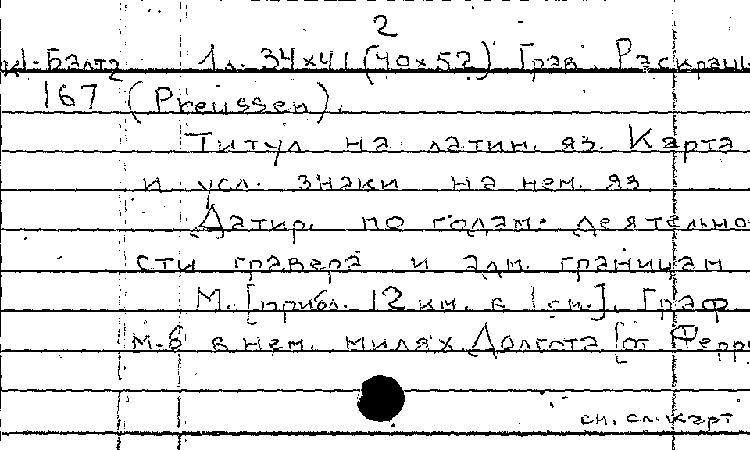 2
К1-Балт2 1л. 34×41 (40×52) Грав. Раскраш
167 (Preussen).
Титул на латин. яз. Карта
и усл. знаки на нем. яз.
Датир. по годам деятельно
сти гравера и адм. границам
М. [прибл. 12 км. в 1 см.]. Граф
м-б в нем. милях Долгота [от Ферр
см. сл. карт